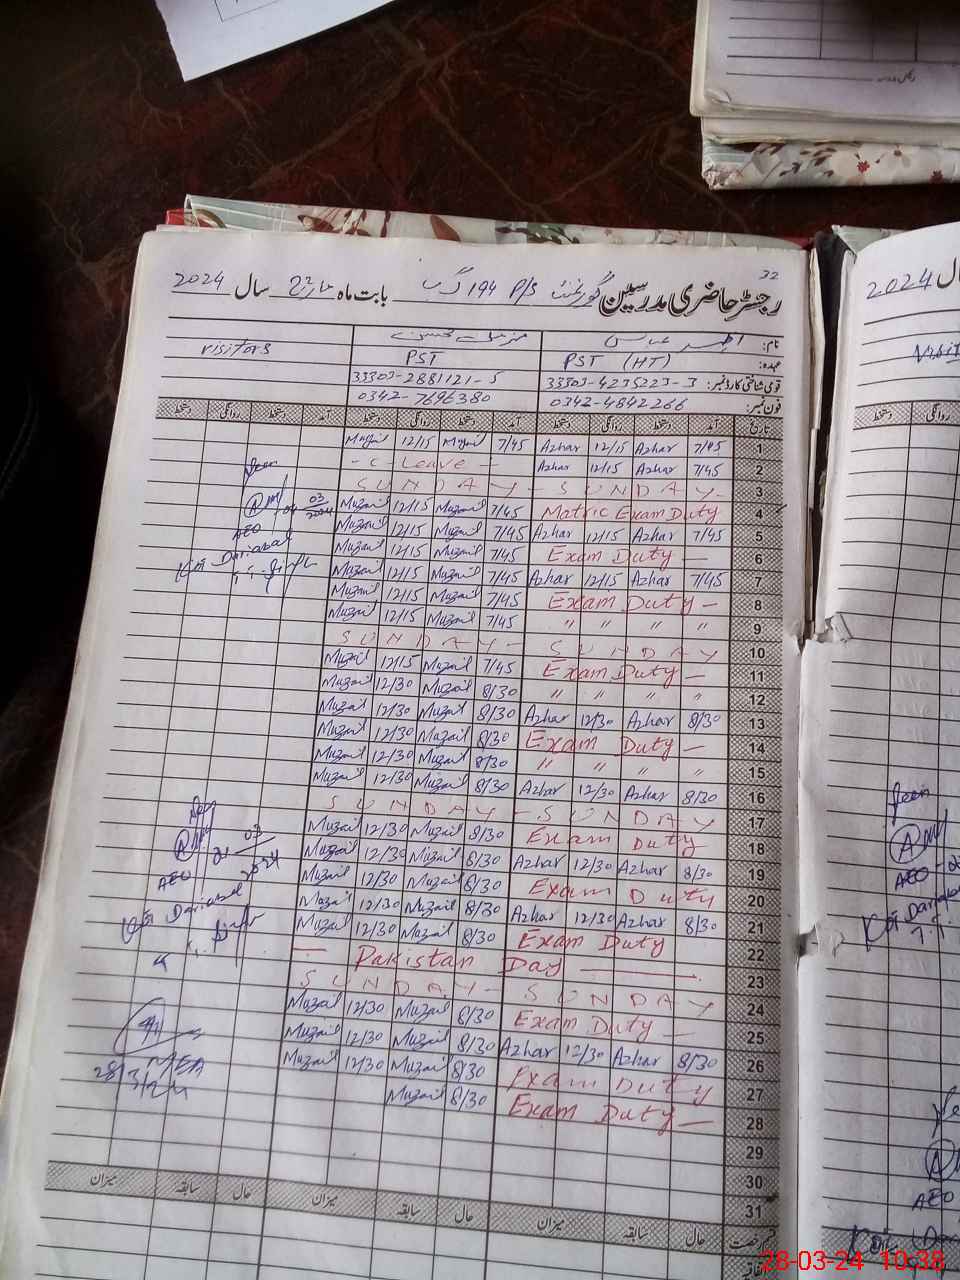 32
رجسٹر حاضری مدرسین گورنمنٹ P/S 194 گ ب بابت ماہ مارچ سال 2024
نام:
visitors PST PST (HT) عہدہ:
33303-2881121-5 33303-4235223-3 قومی شناختی کارڈ نمبر:
0342-7696380 0342-4842266 فون نمبر:
تاریخ آمد دستخط روانگی دستخط آمد دستخط روانگی دستخط آمد دستخط روانگی دستخط
Muzail 12/15 Muzail 7/45 Azhar 12/15 Azhar 7/45 1
- C - Leave - Azhar 12/15 Azhar 7/45 2
SUNDAY - SUNDAY - 3
Muzail 12/15 Muzail 7/45 Matric Exam Duty 4
Muzail 12/15 Muzail 7/45 Azhar 12/15 Azhar 7/45 5
Muzail 12/15 Muzail 7/45 Exam Duty - 6
Muzail 12/15 Muzail 7/45 Azhar 12/15 Azhar 7/45 7
Muzail 12/15 Muzail 7/45 Exam Duty - 8
Muzail 12/15 Muzail 7/45 " " " " 9
SUNDAY - SUNDAY 10
Muzail 12/15 Muzail 7/45 Exam Duty - 11
Muzail 12/30 Muzail 8/30 " " " " 12
Muzail 12/30 Muzail 8/30 Azhar 12/30 Azhar 8/30 13
Muzail 12/30 Muzail 8/30 Exam Duty - 14
Muzail 12/30 Muzail 8/30 " " " " 15
Muzail 12/30 Muzail 8/30 Azhar 12/30 Azhar 8/30 16
SUNDAY - SUNDAY 17
Muzail 12/30 Muzail 8/30 Exam Duty 18
Muzail 12/30 Muzail 8/30 Azhar 12/30 Azhar 8/30 19
Muzail 12/30 Muzail 8/30 Exam Duty 20
Muzail 12/30 Muzail 8/30 Azhar 12/30 Azhar 8/30 21
Muzail 12/30 Muzail 8/30 Exam Duty 22
- Pakistan Day - 23
SUNDAY - SUNDAY 24
Muzail 12/30 Muzail 8/30 Exam Duty - 25
Muzail 12/30 Muzail 8/30 Azhar 12/30 Azhar 8/30 26
Muzail 12/30 Muzail 8/30 Exam Duty 27
Muzail 8/30 Exam Duty - 28
29
30
31
حال سابقہ میزان حال سابقہ میزان حال سابقہ میزان
Seen
03
2024
AEO
Darianal
03
21
2024
AEO
Darianal
MEA
28/3/24
سال 2024
Seen
AEO
AEO
28-03-24 10:38